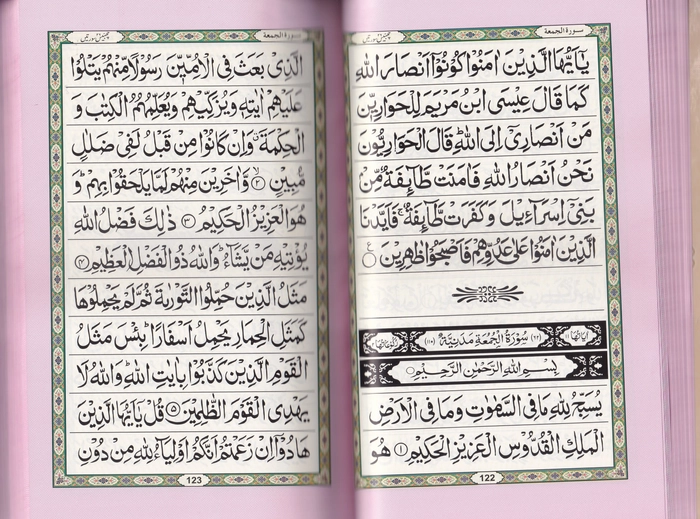 سورة الجمعة
یٰۤاَیُّهَا الَّذِیْنَ اٰمَنُوْا كُوْنُوْۤا اَنْصَارَ اللّٰهِ
كَمَا قَالَ عِیْسَی ابْنُ مَرْیَمَ لِلْحَوَارِیّٖنَ
مَنْ اَنْصَارِیْۤ اِلَی اللّٰهِ ؕ قَالَ الْحَوَارِیُّوْنَ
نَحْنُ اَنْصَارُ اللّٰهِ فَاٰمَنَتْ طَّآىِٕفَةٌ مِّنْۢ
بَنِیْۤ اِسْرَآءِیْلَ وَ كَفَرَتْ طَّآىِٕفَةٌ ۚ فَاَیَّدْنَا
الَّذِیْنَ اٰمَنُوْا عَلٰی عَدُوِّهِمْ فَاَصْبَحُوْا ظٰهِرِیْنَ
اٰیَاتُهَا ۱۱ (٦٢) سُوْرَةُ الْجُمُعَةِ مَدَنِیَّةٌ (١١٠) رُكُوْعَاتُهَا ٢
بِسْمِ اللّٰهِ الرَّحْمٰنِ الرَّحِیْمِ
یُسَبِّحُ لِلّٰهِ مَا فِی السَّمٰوٰتِ وَ مَا فِی الْاَرْضِ
الْمَلِكِ الْقُدُّوْسِ الْعَزِیْزِ الْحَكِیْمِ ﴿۱﴾ هُوَ
122
سورة الجمعة
الَّذِیْ بَعَثَ فِی الْاُمِّیّٖنَ رَسُوْلًا مِّنْهُمْ یَتْلُوْا
عَلَیْهِمْ اٰیٰتِهٖ وَ یُزَكِّیْهِمْ وَ یُعَلِّمُهُمُ الْكِتٰبَ وَ
الْحِكْمَةَ ۗ وَ اِنْ كَانُوْا مِنْ قَبْلُ لَفِیْ ضَلٰلٍ
مُّبِیْنٍ ﴿۲﴾ وَّ اٰخَرِیْنَ مِنْهُمْ لَمَّا یَلْحَقُوْا بِهِمْ ؕ وَ
هُوَ الْعَزِیْزُ الْحَكِیْمُ ﴿۳﴾ ذٰلِكَ فَضْلُ اللّٰهِ
یُؤْتِیْهِ مَنْ یَّشَآءُ ؕ وَ اللّٰهُ ذُو الْفَضْلِ الْعَظِیْمِ ﴿۴﴾
مَثَلُ الَّذِیْنَ حُمِّلُوا التَّوْرٰىةَ ثُمَّ لَمْ یَحْمِلُوْهَا
كَمَثَلِ الْحِمَارِ یَحْمِلُ اَسْفَارًا ؕ بِئْسَ مَثَلُ
الْقَوْمِ الَّذِیْنَ كَذَّبُوْا بِاٰیٰتِ اللّٰهِ ؕ وَ اللّٰهُ لَا
یَهْدِی الْقَوْمَ الظّٰلِمِیْنَ ﴿۵﴾ قُلْ یٰۤاَیُّهَا الَّذِیْنَ
هَادُوْۤا اِنْ زَعَمْتُمْ اَنَّكُمْ اَوْلِیَآءُ لِلّٰهِ مِنْ دُوْنِ
123